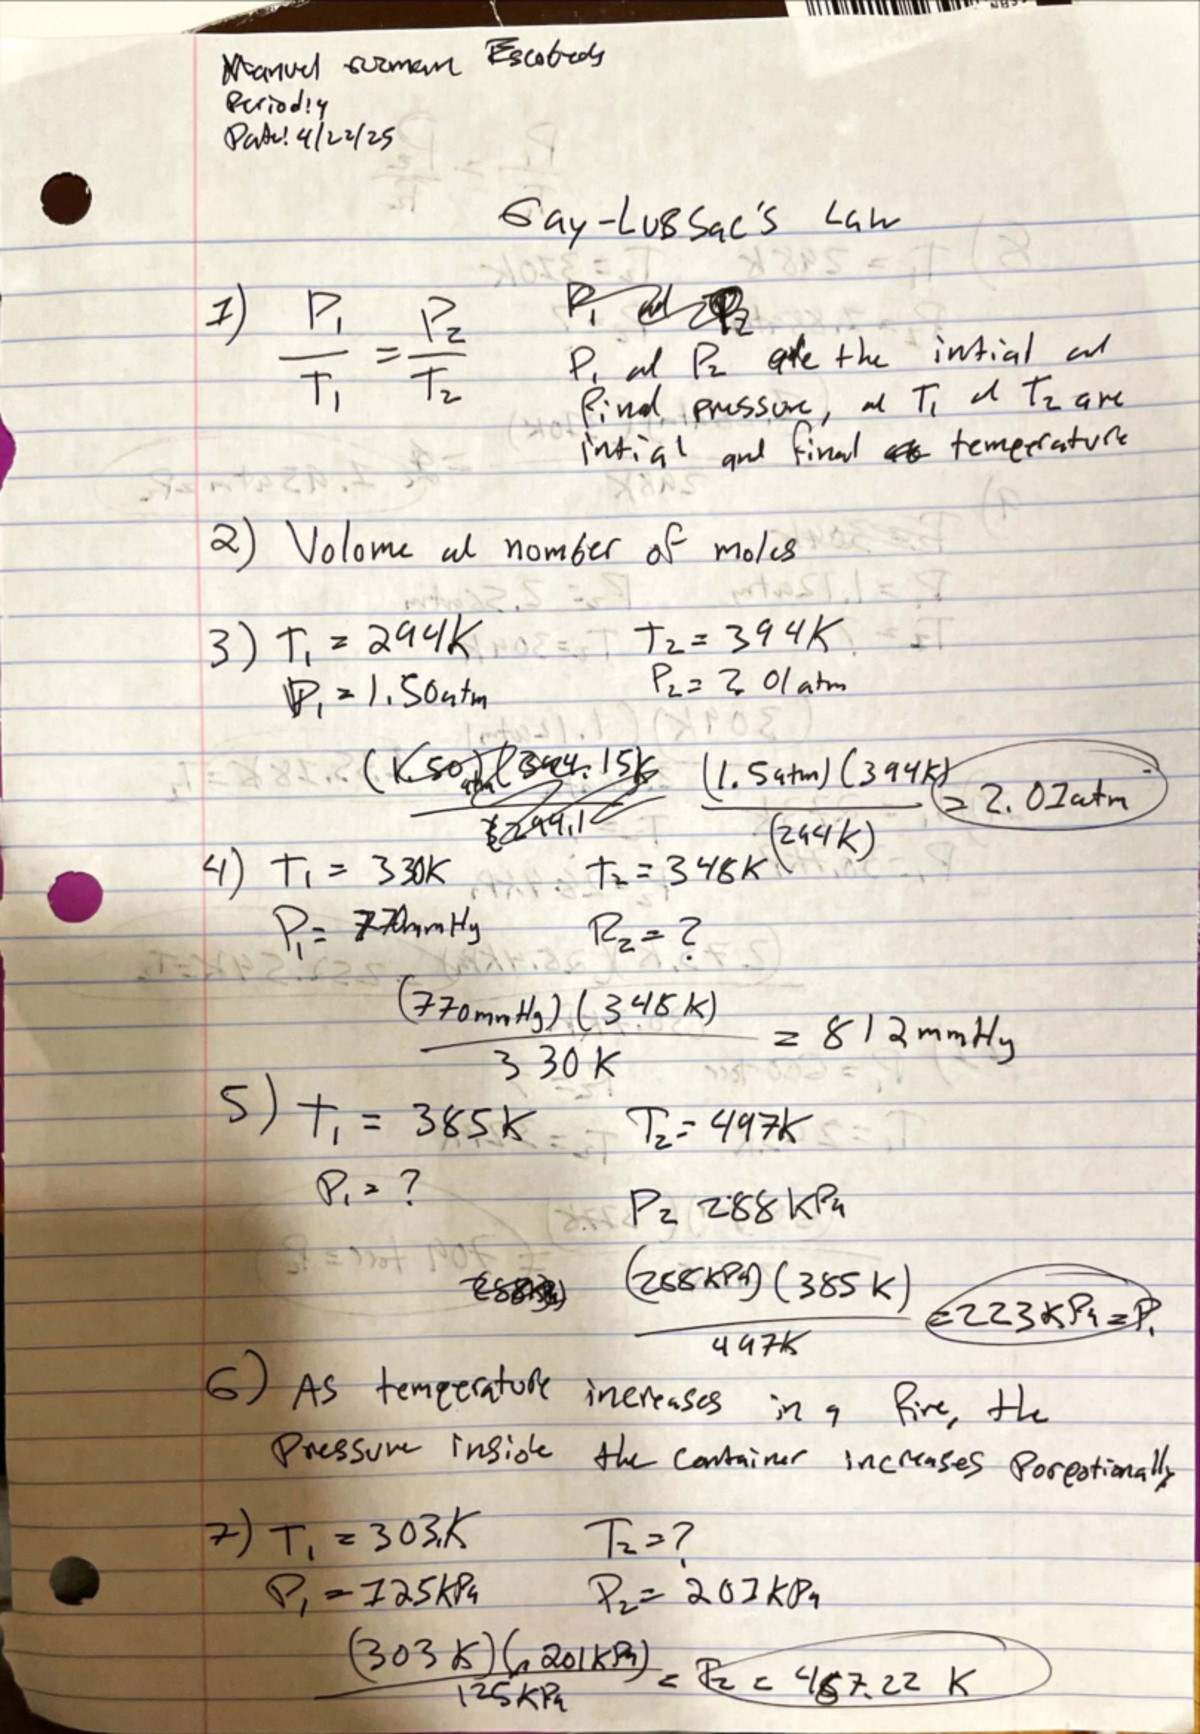 Manuel Escobedo
Period: 4
Date: 4/22/25
Gay-Lussac's Law
1) P₁/T₁ = P₂/T₂
P₁ ad P₂ are the intial ad
final pressure, ad T₁ d T₂ are
intial and final temperature
2) Volome ad nomber of moles
3) T₁ = 294K T₂ = 394K
P₁ = 1.50atm P₂ = 2.01atm
(1.5atm)(394K)/(294K) = 2.01atm
4) T₁ = 330K T₂ = 348K
P₁ = 770mmHg P₂ = ?
(770mmHg)(348K)/330K = 812mmHg
5) T₁ = 385K T₂ = 497K
P₁ = ?
P₂ 288kPa
(288kPa)(385K)/497K = 223kPa = P₁
6) As temperature increases in a fire, the
Pressure inside the container increases Porpotionally
7) T₁ = 303K T₂ = ?
P₁ = 125kPa P₂ = 201kPa
(303K)(201kPa)/125kPa = P₂ = 487.22 K